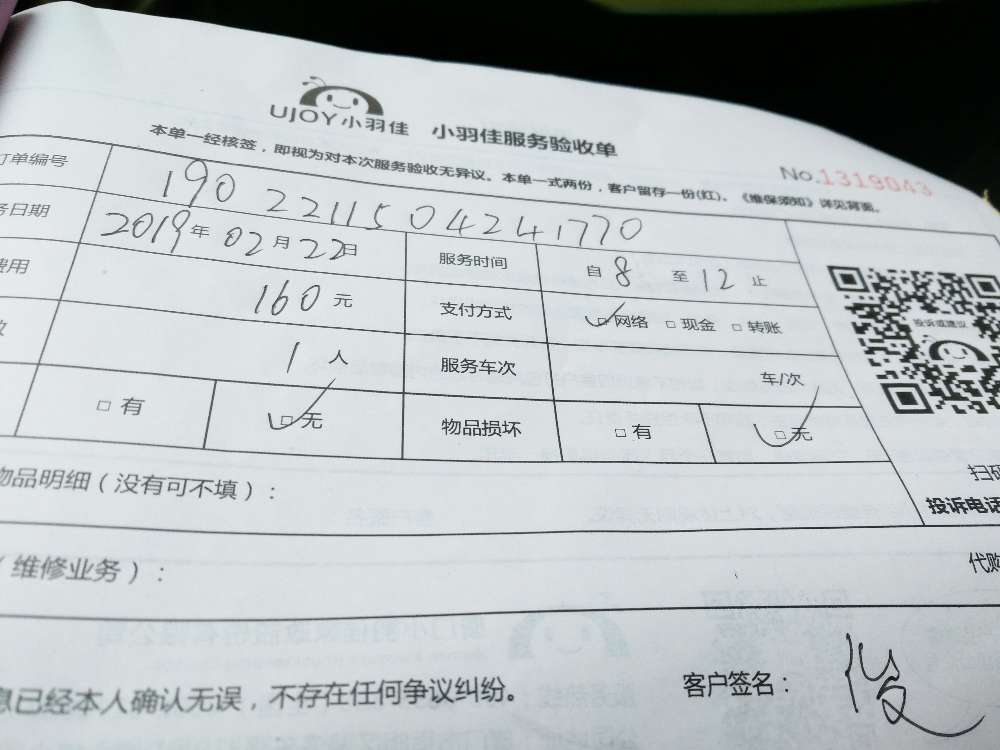 UJOY小羽佳 小羽佳服务验收单
本单一经核签，即视为对本次服务验收无异议。本单一式两份，客户留存一份(红)。《维保须知》详见背面。
No.1319043
订单编号 190 22115 04241770
务日期 2019年02月22日 服务时间 自8至12止
费用 160元 支付方式 □网络 □现金 □转账
1人 服务车次 车/次
□有 □无 物品损坏 □有 □无
投诉或建议
扫码
投诉电话
物品明细（没有可不填）：
（维修业务）： 代购
息已经本人确认无误，不存在任何争议纠纷。 客户签名：